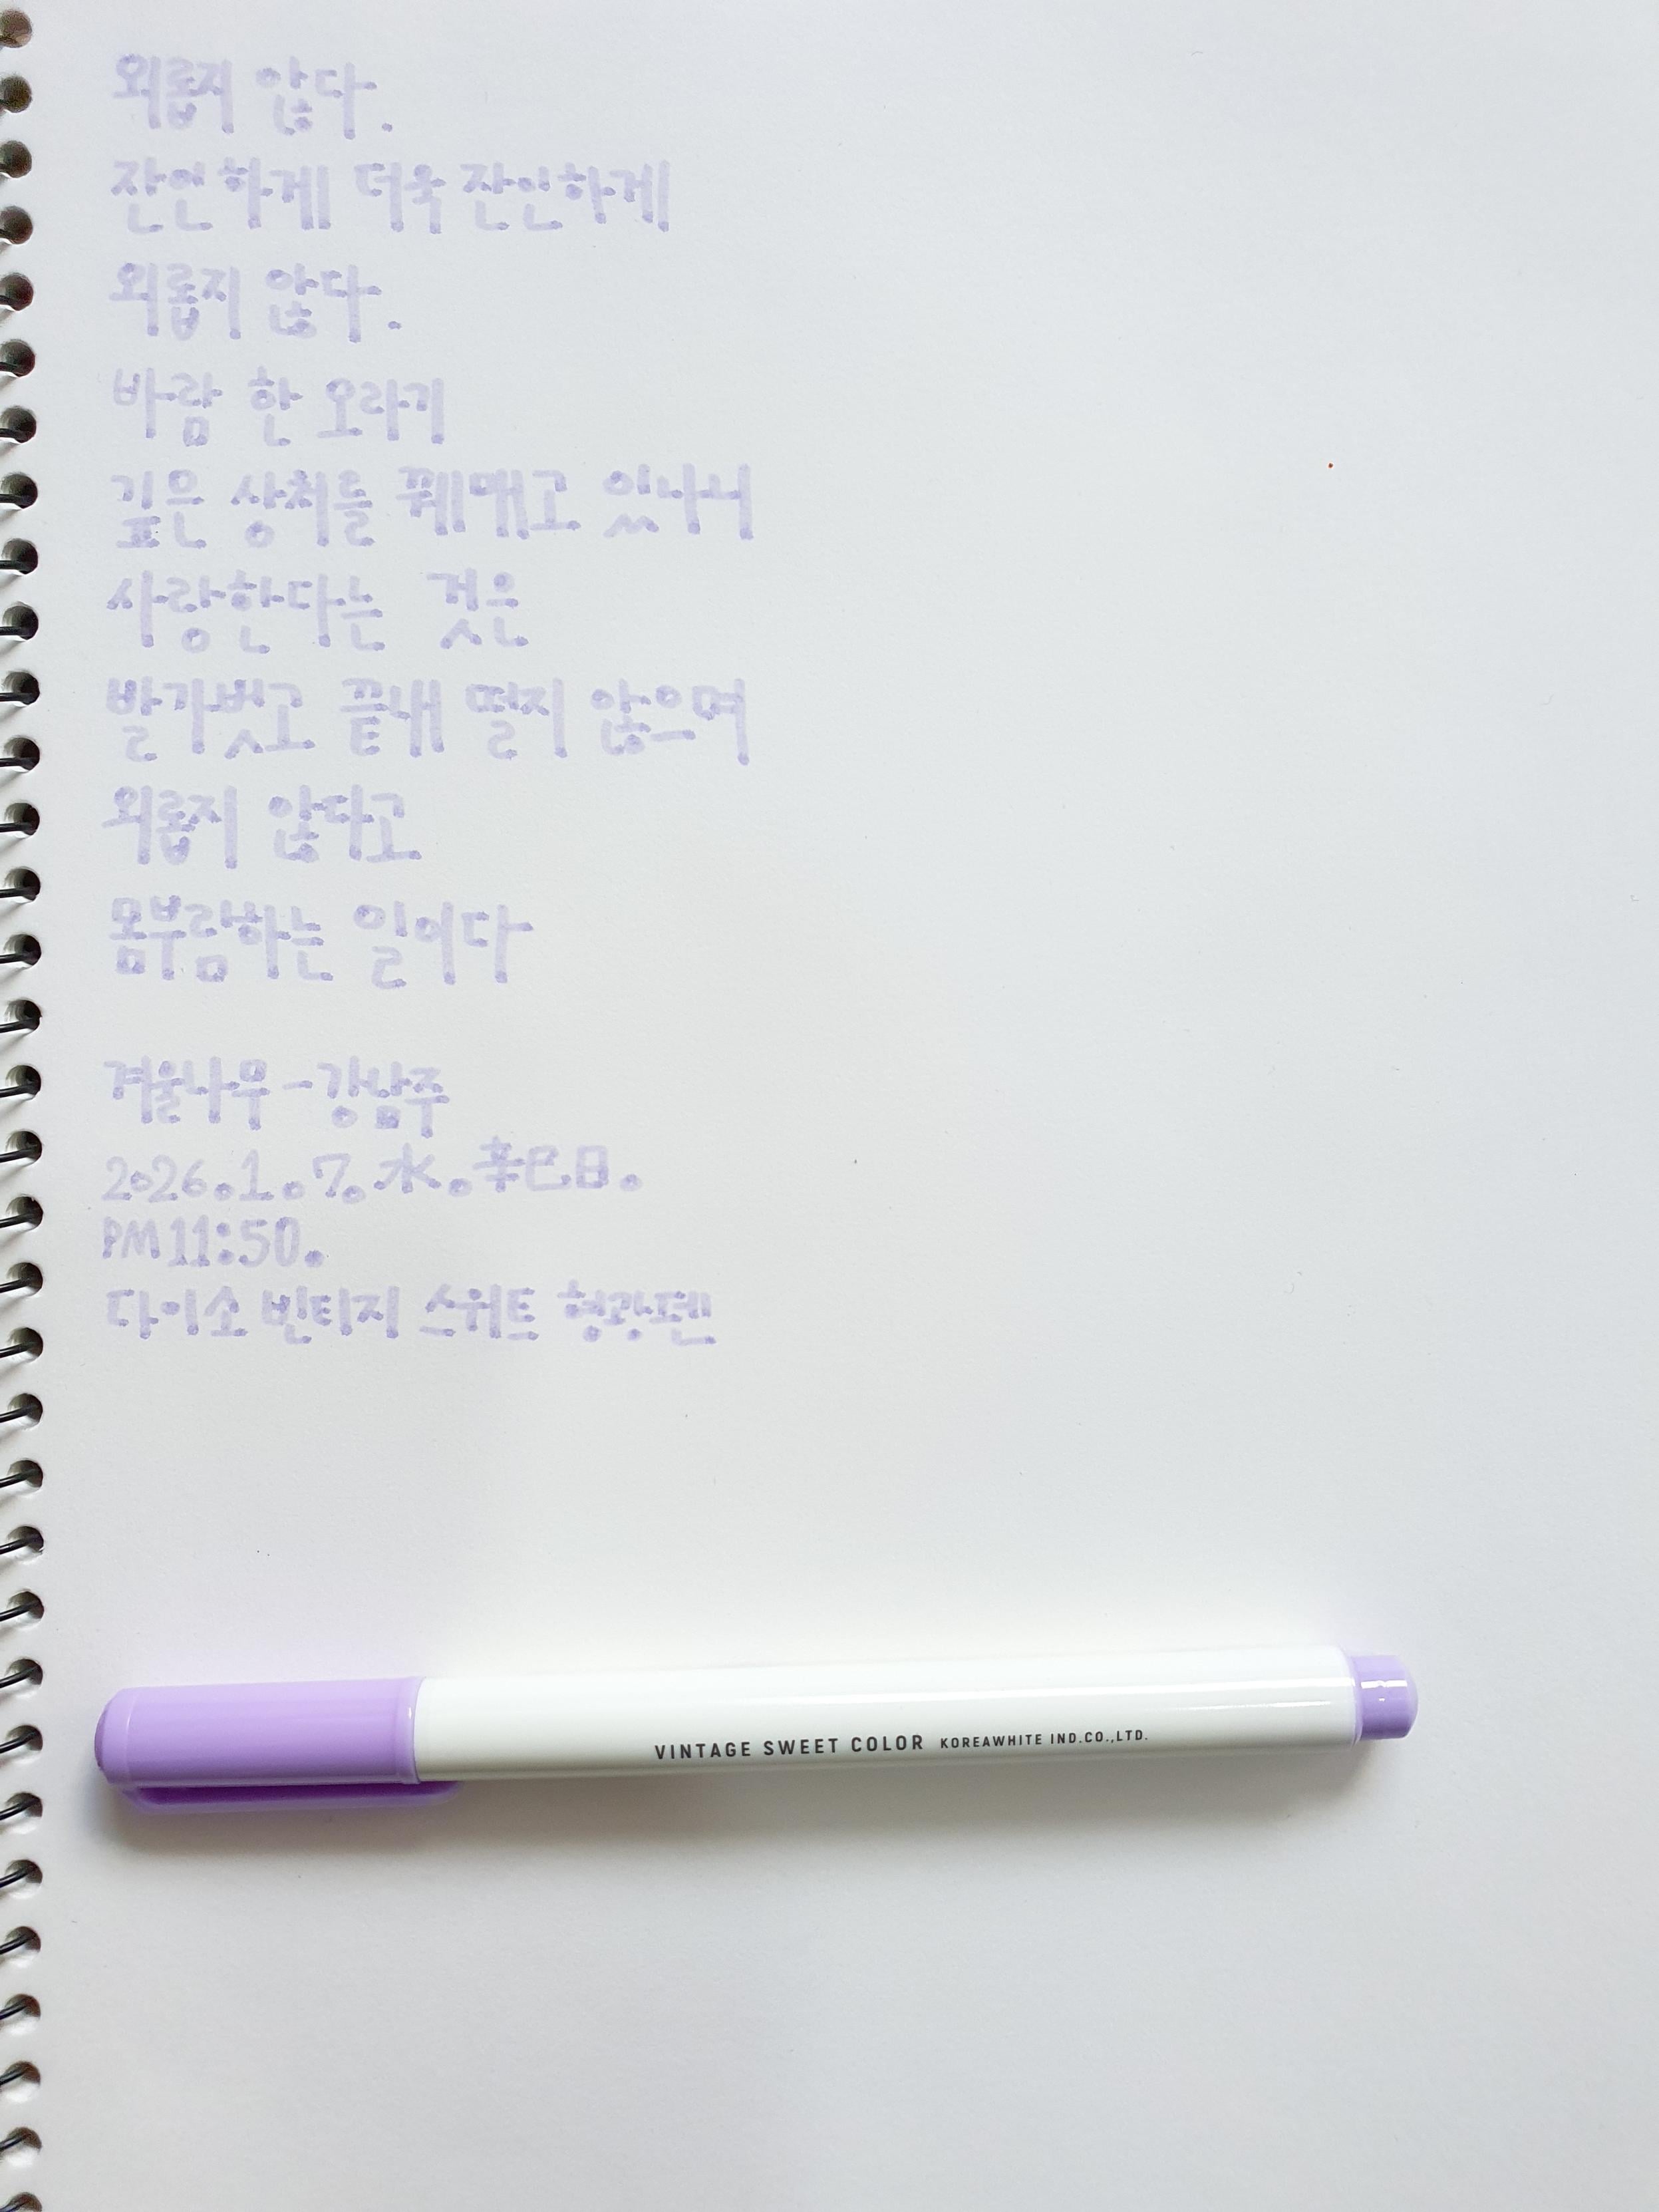 외롭지 않다.
잔인하게 더욱 잔인하게
외롭지 않다.
바람 한 오라기
깊은 상처를 꿰매고 있나니
사랑한다는 것은
발가벗고 끝내 떨지 않으며
외롭지 않다고
몸부림하는 일이다
겨울나무-강남주
2026.1.7.水.辛巳日.
PM11:50.
다이소 빈티지 스위트 형광펜
VINTAGE SWEET COLOR KOREAWHITE IND.CO.,LTD.